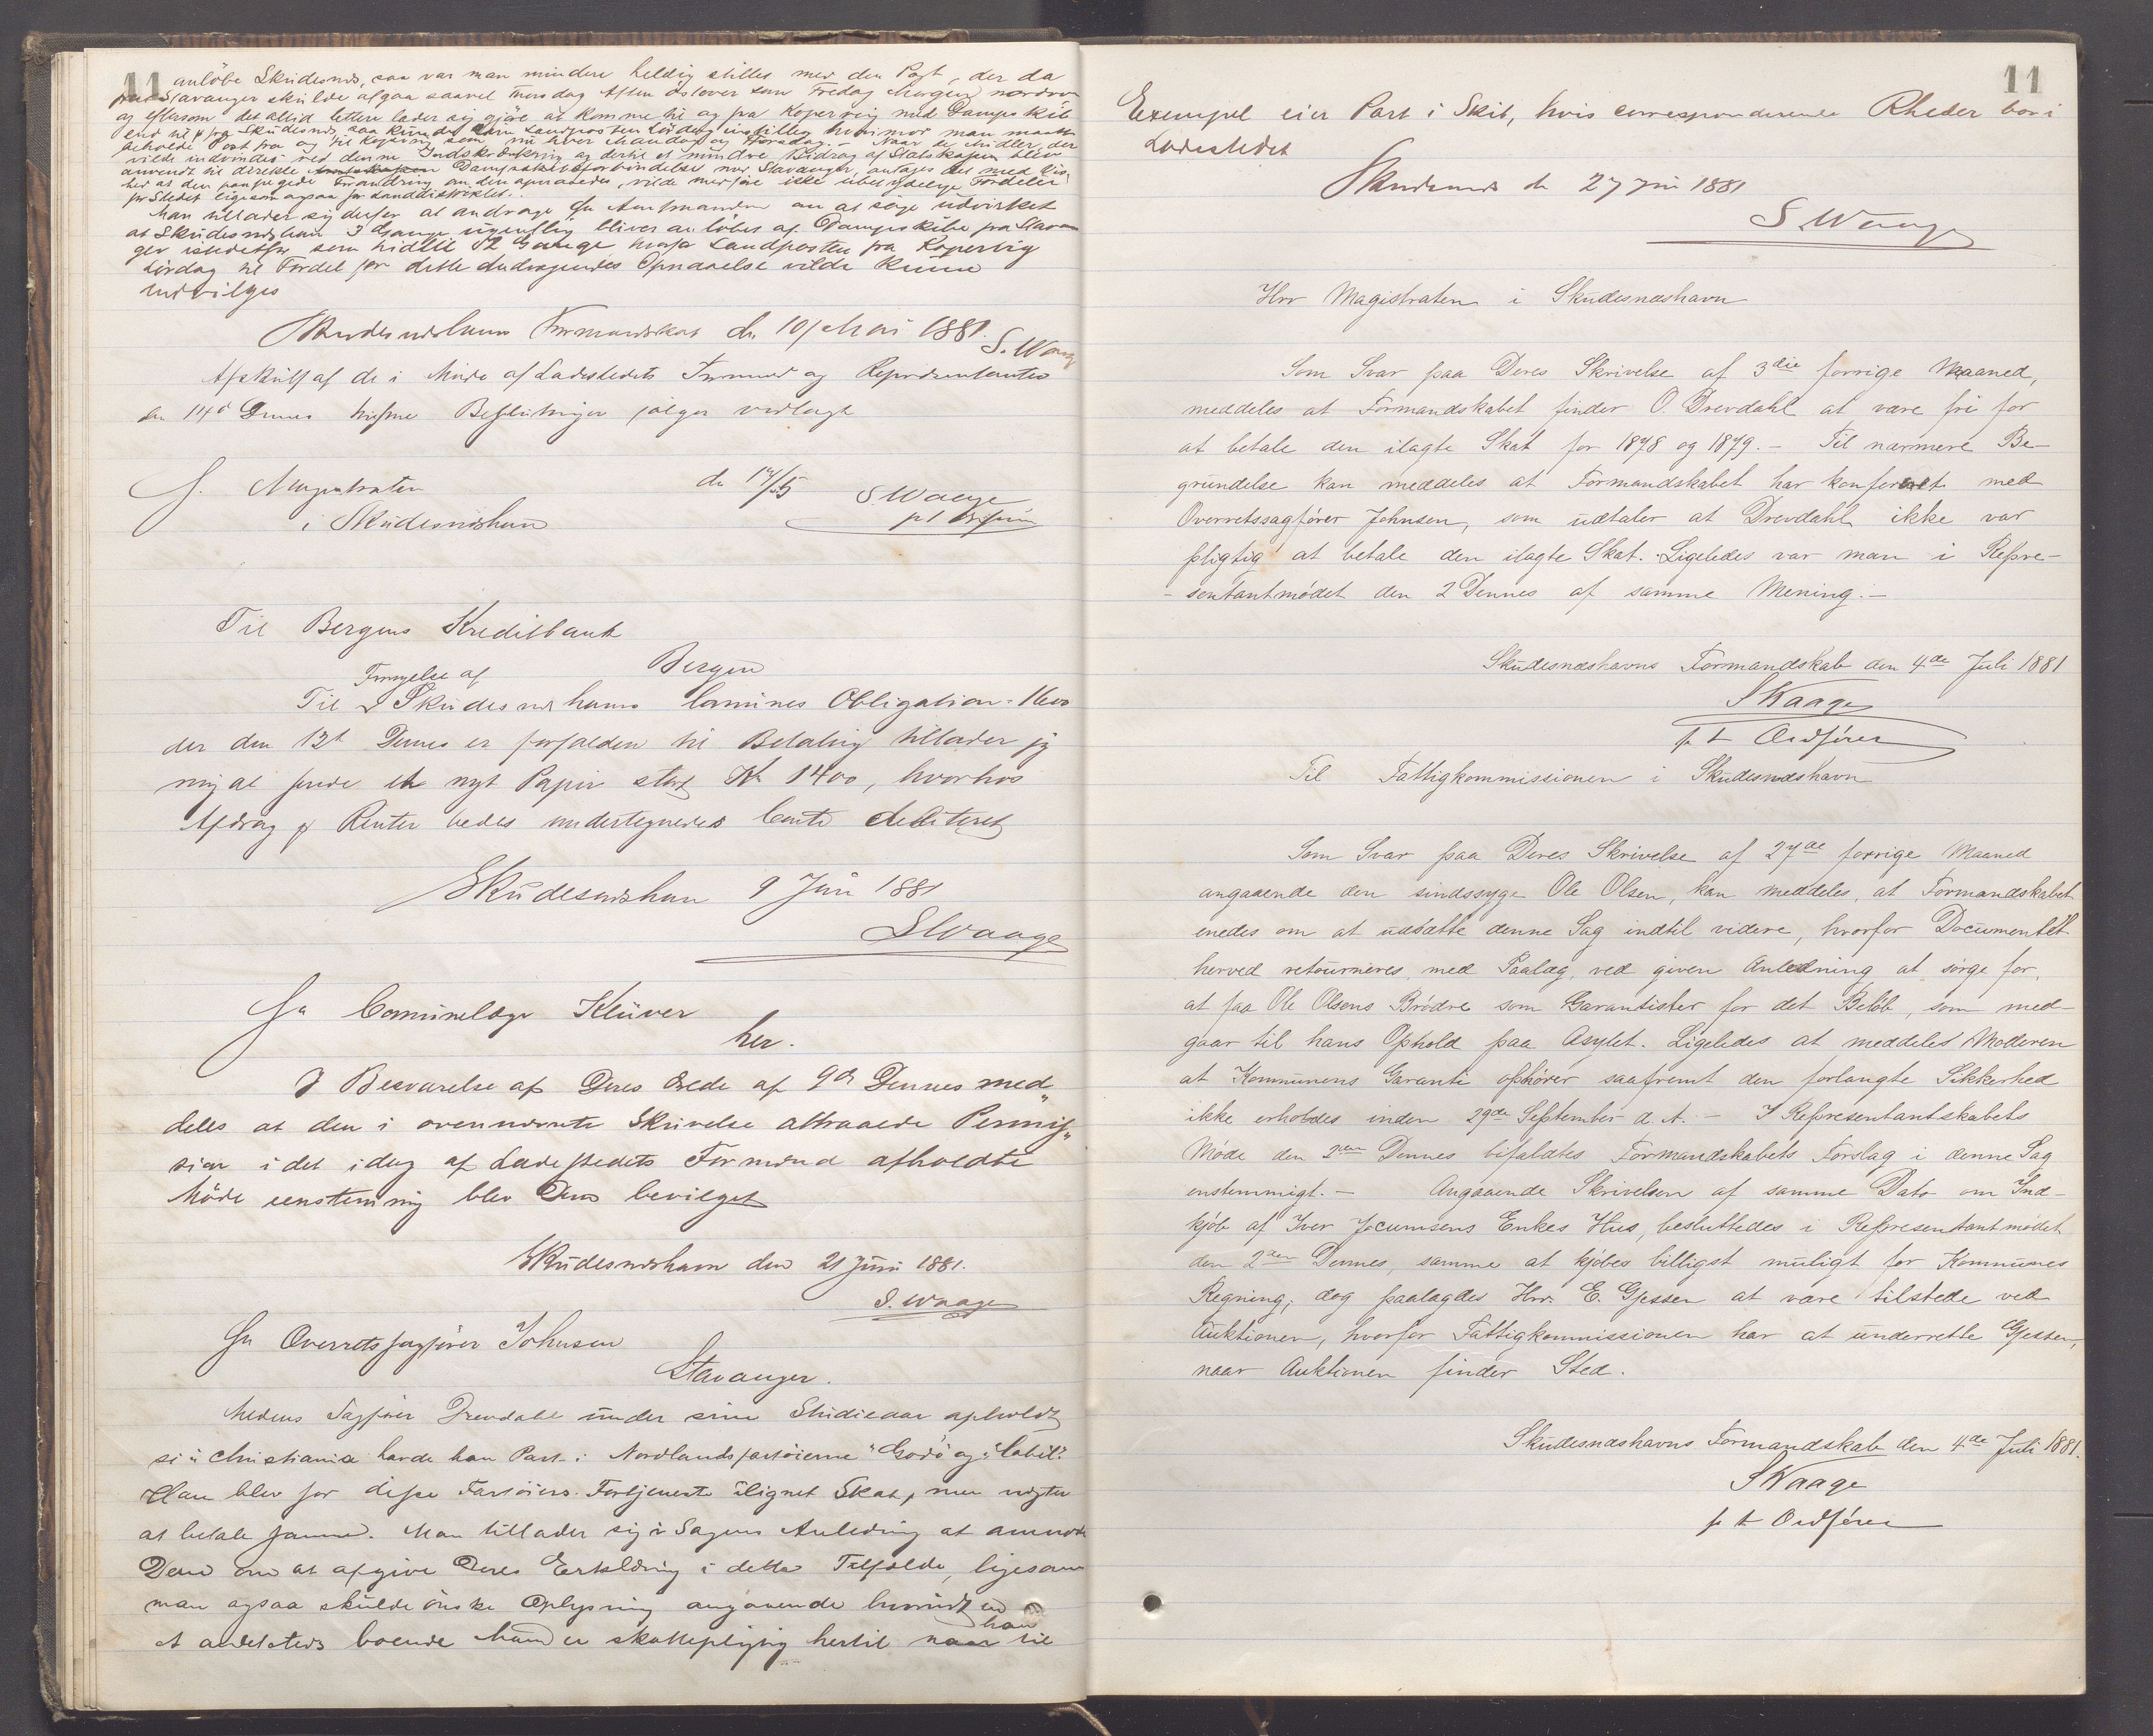 11
anløbe Skudesnæs, saa var man mindre heldig stillet med den Post, der da
fra Stavanger skulde afgaa saavel Torsdag Aften as som Fredag Morgen nordover
og eftersom det altid lettere lader sig gjøre at komme til og fra Kopervig med Dampskib
end til & fra Skudesnæs, saa kunde Landposten Lørdag instilles hvorimod man maatte
beholde Post fra og til Kopervig som nu hver Mandag og Torsdag. - Naar de Midler, der
vilde indvindes ved denne Indskrænkning og dertil et mindre Bidrag af Statskassen blev
anvendt til direkte Dampskibsforbindelse med Stavanger, antages det med Vis-
hed at den paapegede Forandring om den opnaaedes, vilde medføre ikke ubetydelige Fordele
for Stedet ligesom ogsaa for Landdistriktet.
Man tillader sig derfor at andrage Hr Amtmanden om at søge udvirket
at Skudesnæshavn 3 Gange ugentlig bliver anløbet af Dampskibe fra Stavan
ger istedetfor som hidtil 2 Gange hvorfor Landposten fra Kopervig
Lørdag til Fordel for dette Andragendes Opnaaelse vilde kunne
undværes
Skudesnæshavns Formandskab den 10 Mai 1881. S. Waage
Afskrift af de i Møde af Ladestedets Formænd og Repræsentanter
den 14de Dennes trufne Beslutninger følger vedlagt
Hr. Magistraten
i Skudesnæshavn
den 17/5 S Waage
p t Ordfører
Til Bergens Kreditbank
Bergen
Fornyelse af
Til Skudesnæshavns Comunes Obligation - 1600
der den 13de Dennes er forfalden til Betaling tillader jeg
mig at sende et nyt Papir stort Kr 1400, hvorhos
Afdrag & Renter bedes undertegnedes Conto debiteret
Skudesnæshavn 9 Juni 1881
S Waage
Hr Comunelæge Klüver
her.
I Besvarelse af Deres Ærede af 9de Dennes med„
deles at den i ovennævnte Skrivelse attraaede Permis„
sion i det idag af Ladestedets Formænd afholdte
Møde eenstemmig blev Dem bevilget
Skudesnæshavn den 21 Juni 1881.
S. Waage
Hr Overretssagfører Johnsen
Stavanger.
Medens Sagfører Drevdahl under sine Studieaar opholdt
sig i Christiania havde han Part i Nordlandsfartøierne "Godø" og
Han blev for disse Fartøiers Fortjeneste ilignet Skat, men nægter
at betale samme. Man tillader sig i Sagens Anledning at anmode
Dem om at afgive Deres Erklæring i dette Tilfælde, ligesom
man ogsaa skulde ønske Oplysning angaaende hvorvidt en
et andetsteds boende Mand er skattepligtig hertil naar han til
11
Exempel eier Part i Skib, hvis corresponderende Rheder bor i
Ladestedet
Skudesnæs den 27 Juni 1881
S. Waage
Hrr Magistraten i Skudesnæshavn
Som Svar paa Deres Skrivelse af 3die forrige Maaned,
meddeles at Formandskabet finder O. Drevdahl at være fri for
at betale den ilagte Skat for 1878 og 1879. - Til nærmere Be-
grundelse kan meddeles at Formandskabet har konfereret med
Overretssagfører Johnsen, som udtaler at Drevdahl ikke var
pligtig at betale den ilagte Skat. Ligeledes var man i Repre-
- sentantmødet den 2 Dennes af samme Mening. -
Skudesnæshavns Formandskab den 4de Juli 1881
S Waage
p t Ordfører
Til Fattigkommissionen i Skudesnæshavn
Som Svar paa Deres Skrivelse af 27de forrige Maaned
angaaende den sindssyge Ole Olsen, kan meddeles, at Formandskabet
enedes om at udsætte denne Sag indtil videre, hvorfor Documentet
herved retourneres, med Paalæg, ved given Anledning at sørge for,
at faa Ole Olsens Brødre som Garantister for det Beløb, som med-
gaar til hans Ophold paa Asylet. Ligeledes at meddeles Moderen
at Kommunens Garanti ophører saafremt den forlangte Sikkerhed
ikke erholdes inden 29de September d. A. - I Representantskabets
Møde den 2den Dennes bifaldtes Formandskabets Forslag i denne Sag
enstemmigt. - Angaaende Skrivelsen af samme Dato om Ind-
kjøb af Iver Jocumsens Enkes Hus, besluttedes i Representantmødet
den 2den Dennes, samme at kjøbes billigst muligt for Kommunes
Regning; dog paalagdes Hrr. E. Gjessen at være tilstede ved
Auktionen, hvorfor Fattigkommissionen har at underrette Gjessen,
naar Auktionen finder Sted.
Skudesnæshavns Formandskab den 4de Juli 1881.
S Waage
p t Ordfører